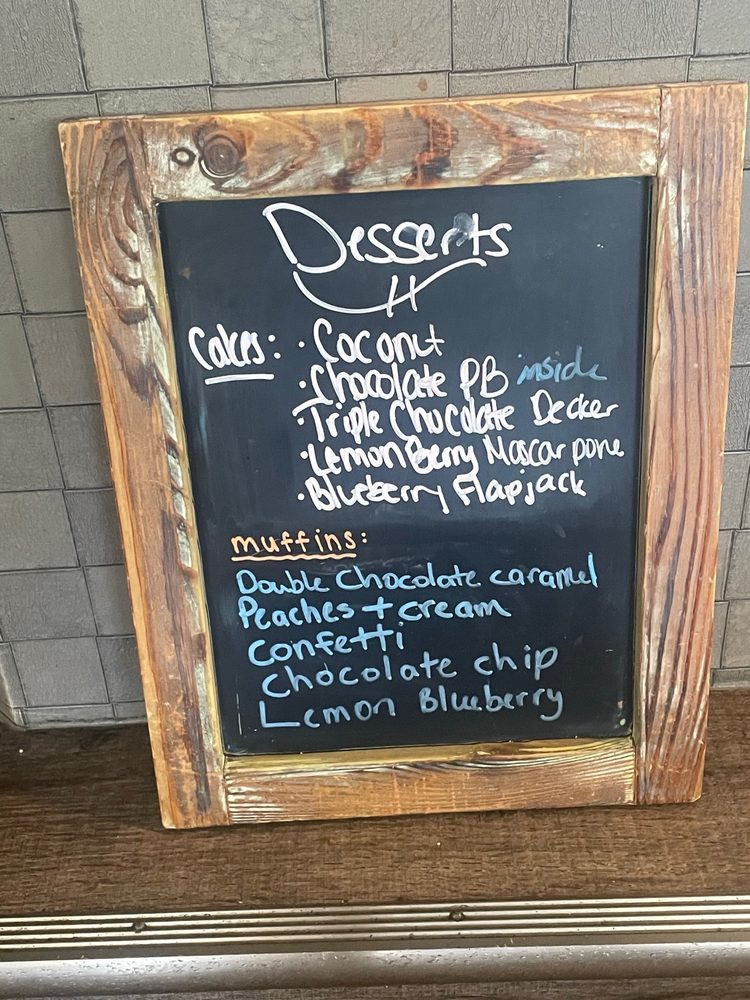 Desserts
Cakes: · Coconut
· Chocolate PB inside
· Triple Chocolate Decker
· Lemon Berry Mascarpone
· Blueberry Flapjack
muffins:
Double Chocolate caramel
Peaches + cream
confetti
Chocolate chip
Lemon Blueberry